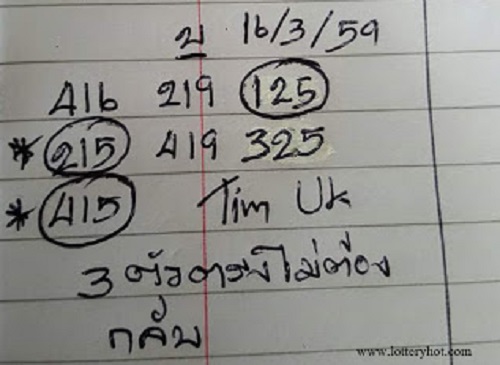 บ 16/3/59
416 219 125
* 215 419 325
* 415 Tim Uk
3 ตัวตรงไม่ต้อง
กลับ
www.lotteryhot.com